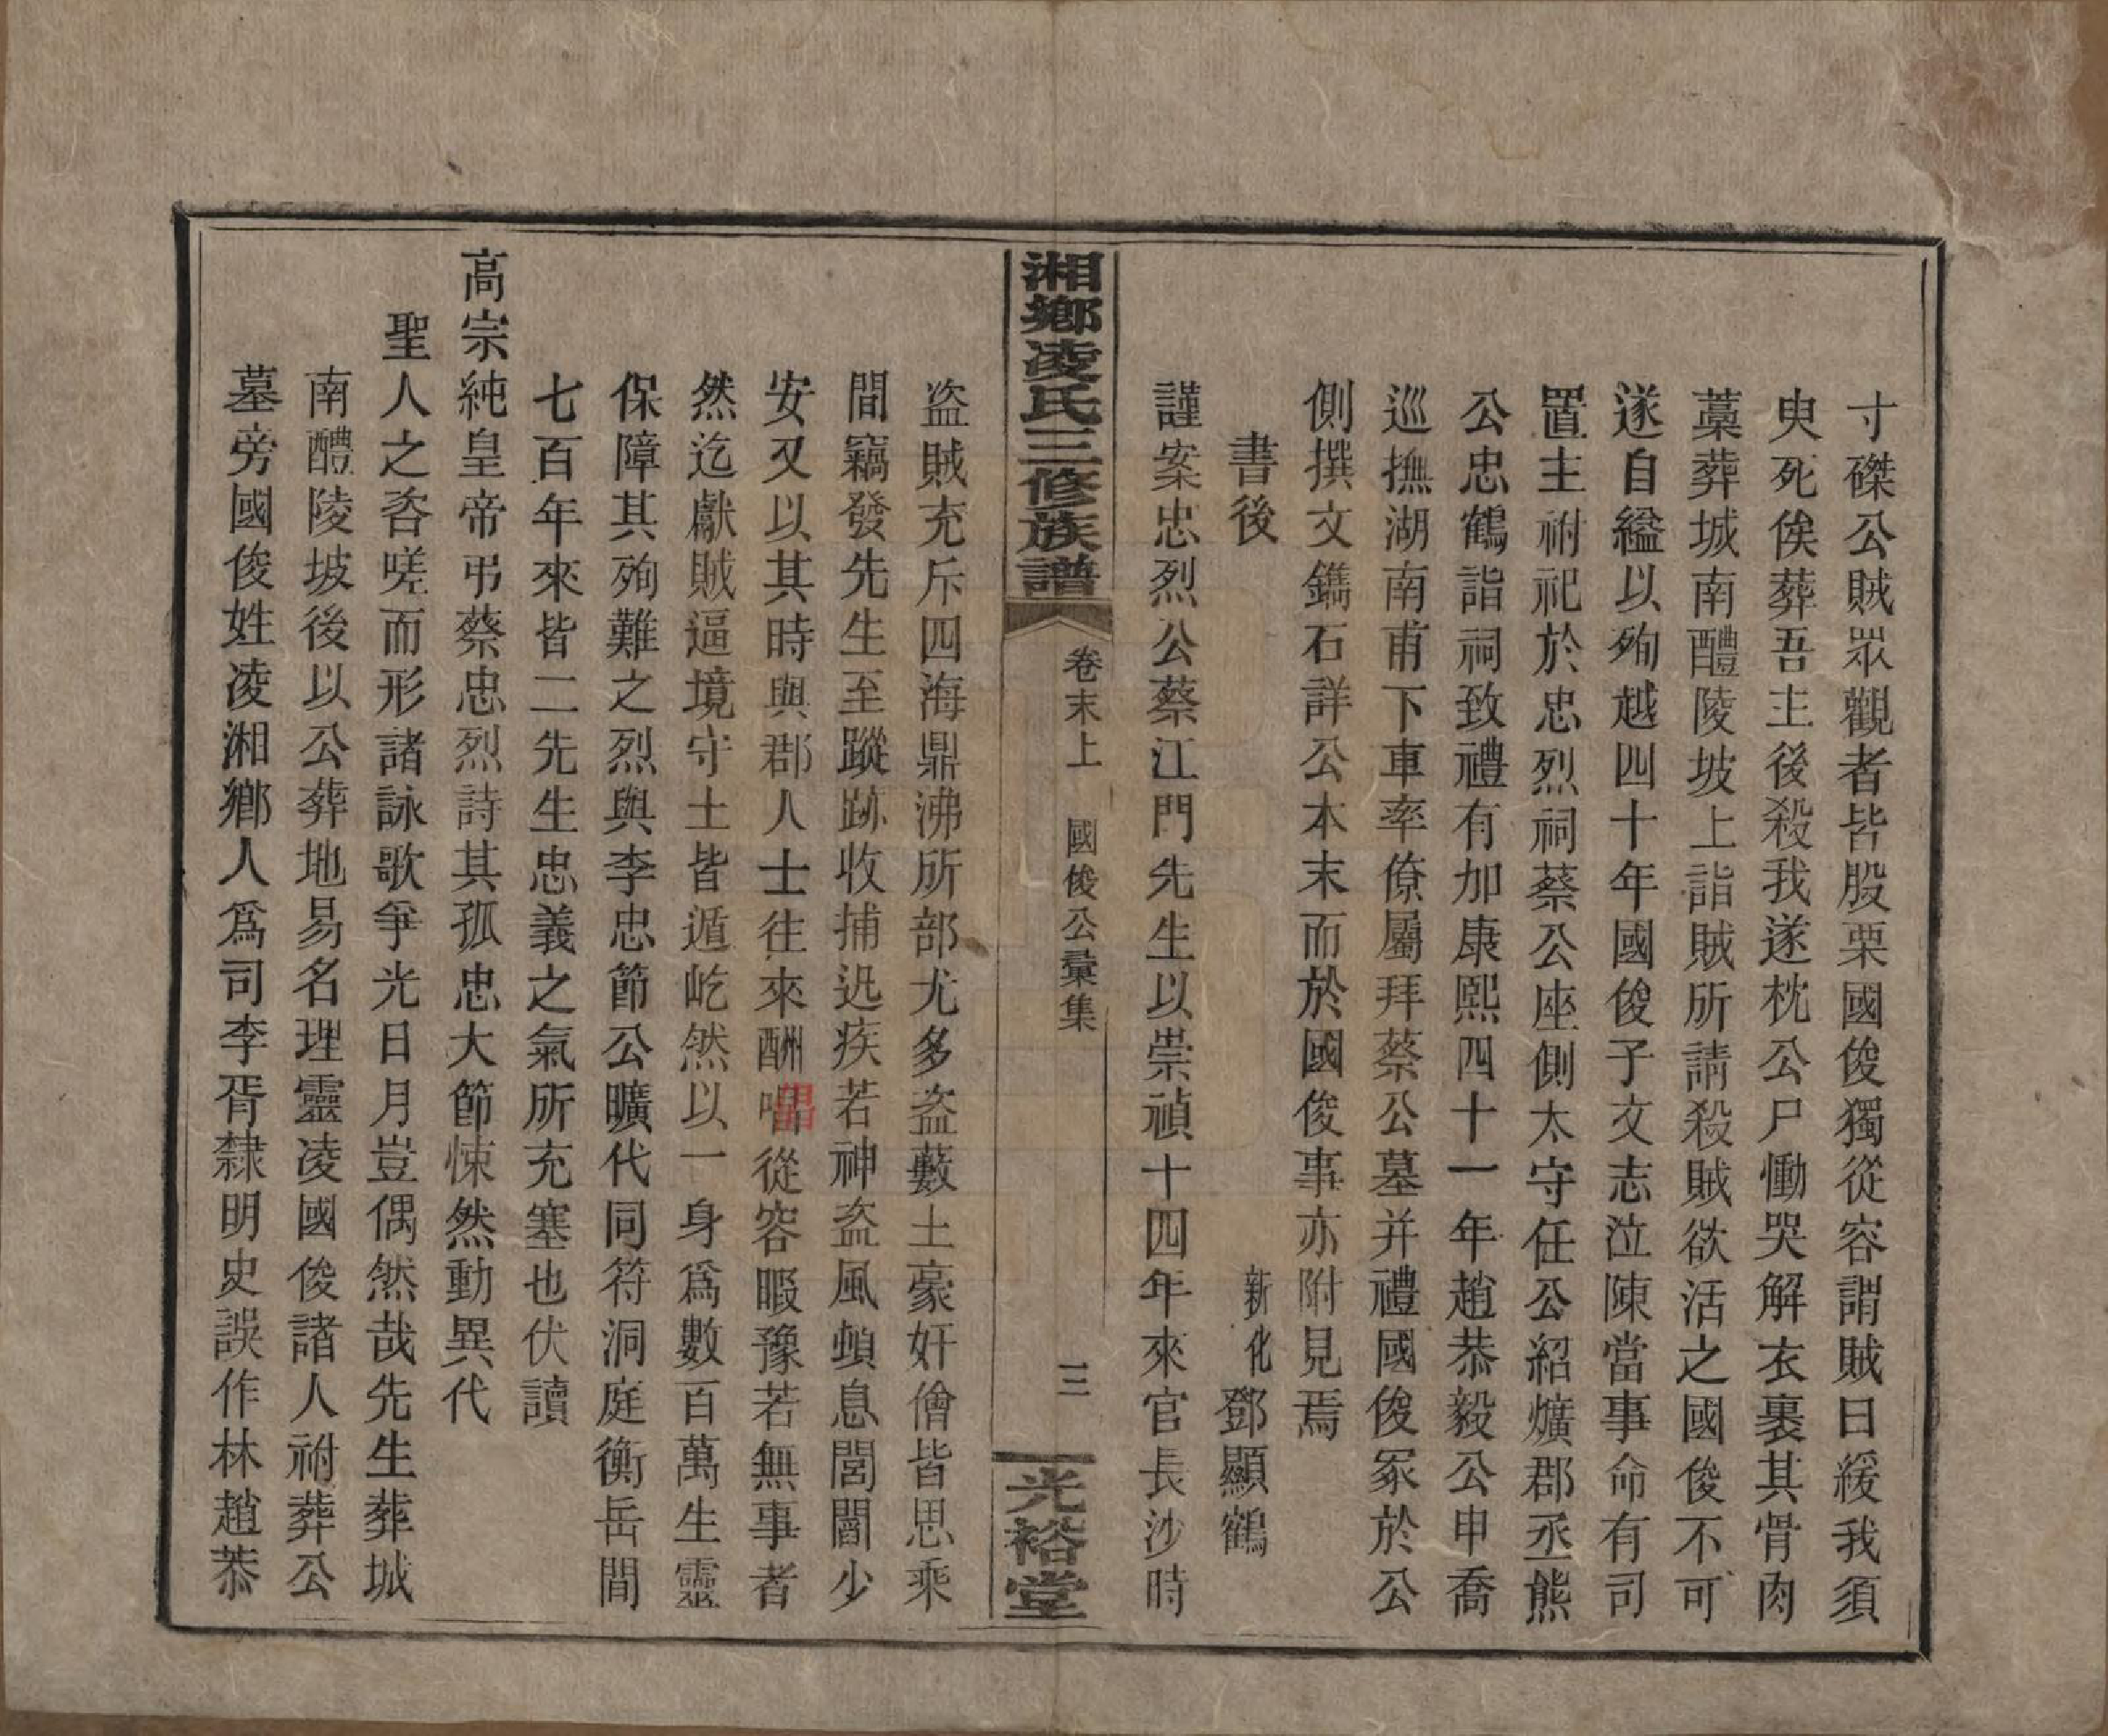 寸磔公賊眾觀者皆股栗國俊獨從容謂賊曰緩我須
臾死俟葬吾主後殺我遂枕公尸慟哭解衣裹其骨肉
藁葬城南醴陵坡上詣賊所請殺賊欲活之國俊不可
遂自縊以殉越四十年國俊子文志泣陳當事命有司
置主祔祀於忠烈祠蔡公座側太守任公紹爌郡丞熊
公忠鶴詣祠致禮有加康熙四十一年趙恭毅公申喬
巡撫湖南甫下車率僚屬拜蔡公墓并禮國俊冢於公
側撰文鐫石詳公本末而於國俊事亦附見焉
書後 新化鄧顯鶴
謹案忠烈公蔡江門先生以崇禎十四年來官長沙時
湘鄉凌氏三修族譜 卷末上 國俊公彙集 三 光裕堂
盗賊充斥四海鼎沸所部尤多盗藪土豪奸儈皆思乘
間竊發先生至蹤跡收捕迅疾若神盗風頓息閭閻少
安又以其時與郡人士往來酬唱從容暇豫若無事者
然迄獻賊逼境守土皆遁屹然以一身爲數百萬生靈
保障其殉難之烈與李忠節公曠代同符洞庭衡岳間
七百年來皆二先生忠義之氣所充塞也伏讀
高宗純皇帝弔蔡忠烈詩其孤忠大節悚然動異代
聖人之咨嗟而形諸詠歌爭光日月豈偶然哉先生葬城
南醴陵坡後以公葬地易名理靈凌國俊諸人祔葬公
墓旁國俊姓凌湘鄉人爲司李胥隸明史誤作林趙恭